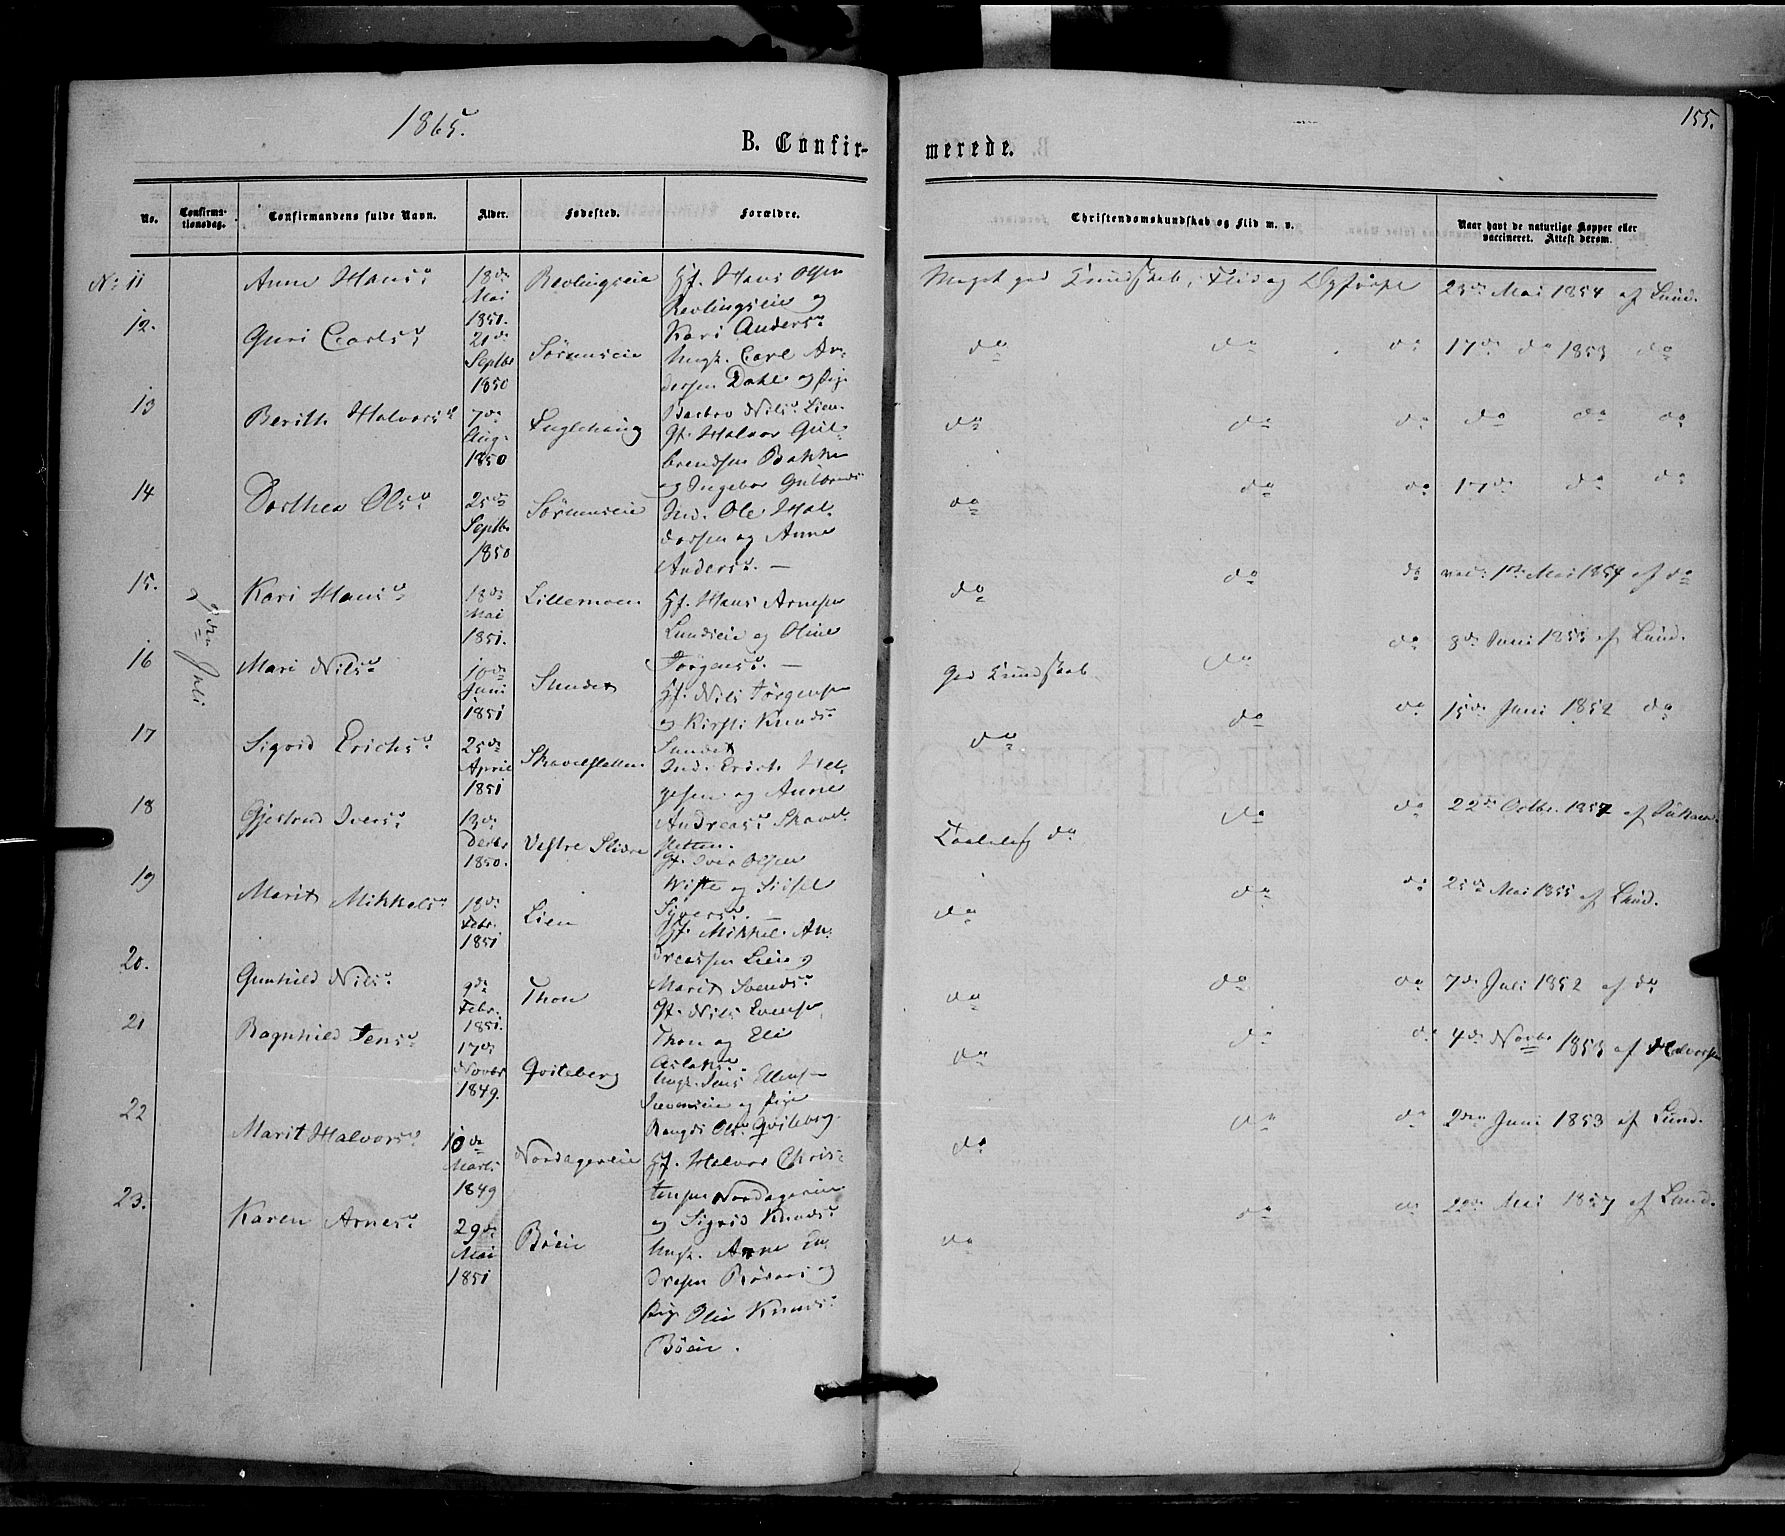 1865.
155.
B. Confir-
merede.
No.
Confirma-
tionsdag.
Confirmandens fulde Navn.
Alder.
Fødested.
Forældre.
Christendomskundskab og Flid m. v.
Naar havt de naturlige Kopper eller
vaccineret. Attest derom.
9de Juli
No 11
Anne Hansd
18de
Mai
1851.
Revlingseie
Gf. Hans Olsen
Revlingseie og
Kari Andersd
Meget god Kundskab, Flid og Opførsel
23de Mai 1854 af Lund.
12.
Guri Carlsd
21de
Septbr
1850
Sørumseie
Ungk. Carl An-
dersen Dahl og Pige
Barbro Nilsd Lien
do do do
17de do 1853 do
13
Berith Halvorsd
7de
Aug.
1850
Fuglehaug
Gf. Halvor Gul-
brandsen Bakke
og Ingebor Gulbrandsd
do do do
do do do
14
Dorthea Olsd
25de
Septbr
1850
Sørumseie
Ind. Ole Hal-
dorsen og Anne
Andersd. —
do do do
17de do do
15.
Kari Hansd
18de
Mai
1851.
Lillemoen
Gf. Hans Arnesen
Lundseie og Oline
Jørgensd. —
do do do
1ste Mai 1854 af do
16
Mari Nilsd
10de
Juni
1851
Sundet
Gf. Nils Jørgensen
og Kirsti Knudsd
Sundet
God Kundskab do do
8de Juni 1855 af Lund.
17
Sigrid Erichsd
25de
April
1851
Skavelstetten
Ind. Erich Hel-
gesen og Anne
Andreasd Skavel-
stetten.
do do do
15de Juni 1852 do
18
Gjertrud Iversd
13de
Decbr
1850.
Vestre Slidre
Gf. Iver Olsen
Wiste og Sissel
Syversd. —
Taalelig do do do
22de Octbr. 1857 af
19
Marit Mikkelsd
18de
Febr.
1851
Lien
Gf. Mikkel An-
dreassen Lien og
Marit Svendsd
do do do
25de Mai 1855 af Lund.
20.
Gunhild Nilsd
9de
Febr.
1851.
Thon
Gf. Nils Evensen
Thon og Eli
Aslaksd.
do do do
7de Juli 1852 af do
21
Ragnhild Jensd
17de
Novbr
1849.
Qviteberg
Ungk. Jens Ellensen
og Pige
Rangdi Olsd Qviteberg
do do do
4de Novbr 1853 af Halvorsen
22
Marit Halvorsd
10de
Marts
1849
Nordagereie
Gf. Halvor Chris-
tensen Nordagereie
og Sigrid Knudsd
do do do
2den Juni 1853 af Lund.
23.
Karen Arnesd
29de
Mai
1851
Bøeie
Ungk. Arne En-
dresen og
Pige Oliv Knudsd
Bøeie.
do do do
22de Mai 1857 af Lund.